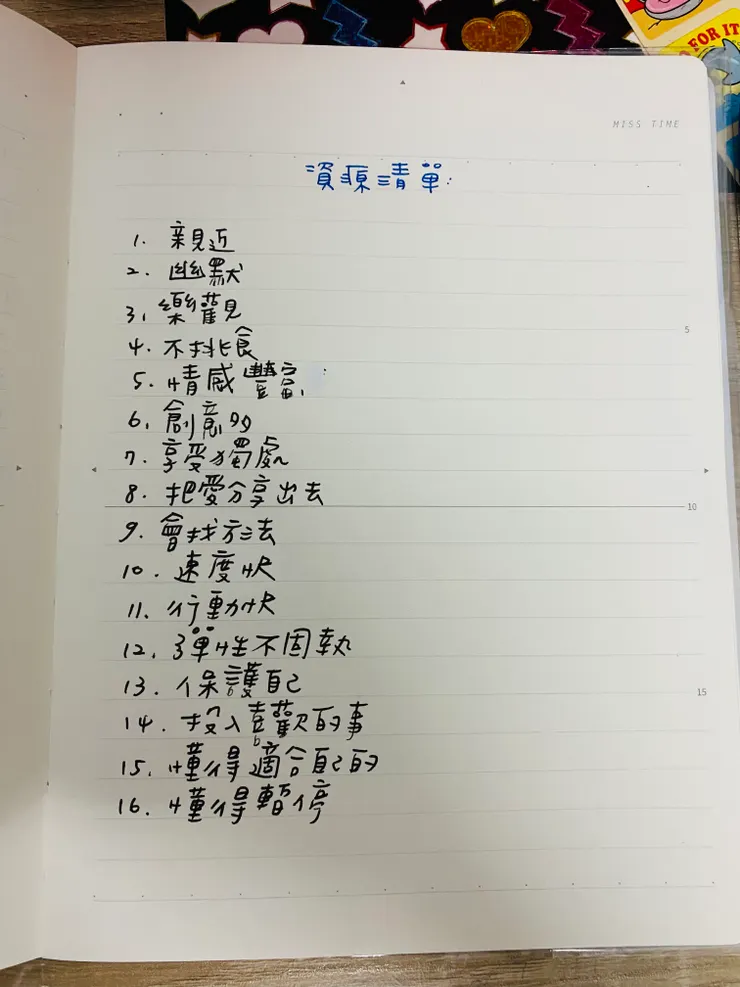 FOR IT
MISS TIME
資源清單:
1. 親近
2. 幽默
3. 樂觀
4. 不挑食
5
5. 情感豐富
6. 創意多
7. 享受獨處
8. 把愛分享出去
10
9. 會找方法
10. 速度快
11. 行動快
12. 彈性不固執
13. 保護自己
15
14. 投入喜歡的事
15. 懂得適合自己的
16. 懂得暫停